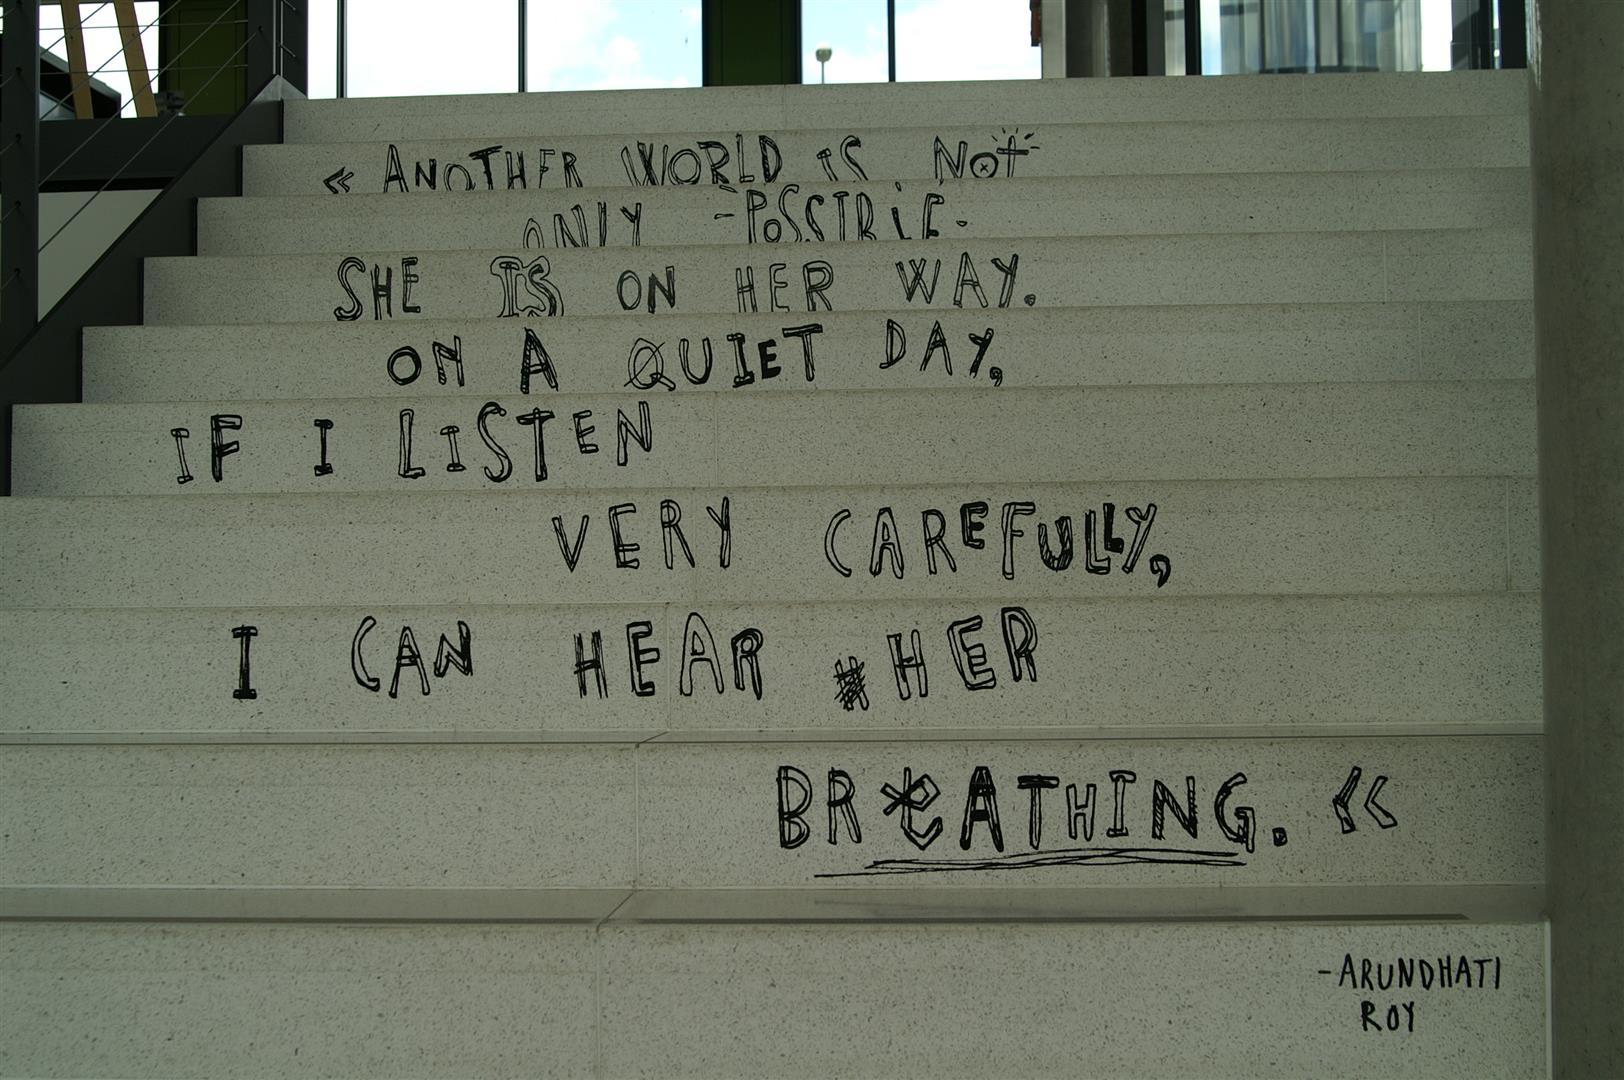 « ANOTHER WORLD IS NOT
ONLY -POSSIBLE-
SHE IS ON HER WAY.
ON A QUIET DAY,
IF I LISTEN
VERY CAREFULLY,
I CAN HEAR #HER
BREATHING. «
-ARUNDHATI
ROY